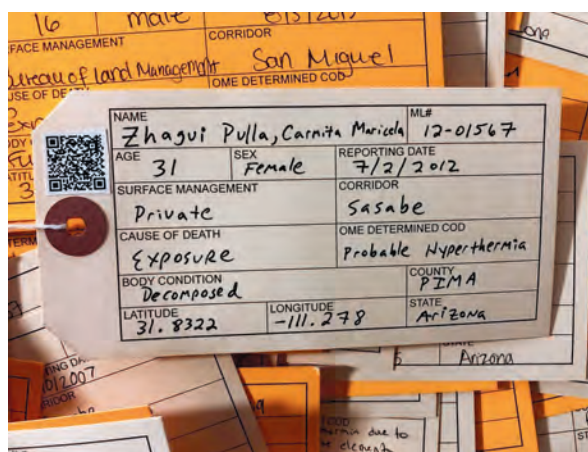 16
male
8/3/201
FACE MANAGEMENT
CORRIDOR
ureau of land Management
San Miguel
USE OF DEA
OME DETERMINED COD
NAME
Zhagui Pulla, Carmita Maricela
ML#
12-01567
AGE
31
SEX
Female
REPORTING DATE
7/2/2012
SURFACE MANAGEMENT
Private
CORRIDOR
Sasabe
CAUSE OF DEATH
Exposure
OME DETERMINED COD
Probable Hyperthermia
BODY CONDITION
Decomposed
COUNTY
PIMA
LATITUDE
31.8322
LONGITUDE
-111.278
STATE
Arizona
Arizona
TING DA
/2007
RIDOR
due to
element